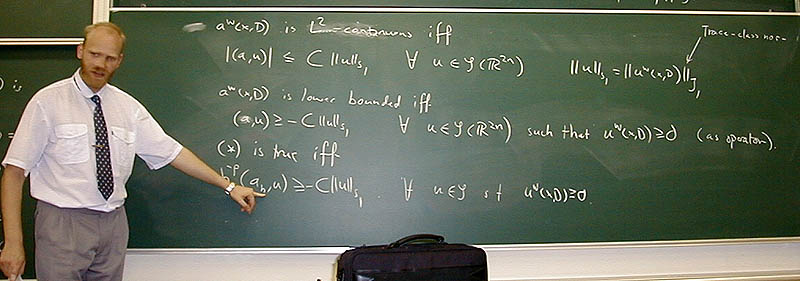 a^w(x,D) is L²-continuous iff
|(a,u)| ≤ C‖u‖_{s_1} ∀ u ∈ 𝒮(ℝ^{2n})
Trace-class norm
‖u‖_{s_1} = ‖u^w(x,D)‖_{J_1}
a^w(x,D) is lower bounded iff
(a,u) ≥ -C‖u‖_{s_1} ∀ u ∈ 𝒮(ℝ^{2n}) such that u^w(x,D) ≥ 0 (as operator).
(*) is true iff
h^{-p}(a_h,u) ≥ -C‖u‖_{s_1} . ∀ u ∈ 𝒮 st u^w(x,D) ≥ 0.
) is